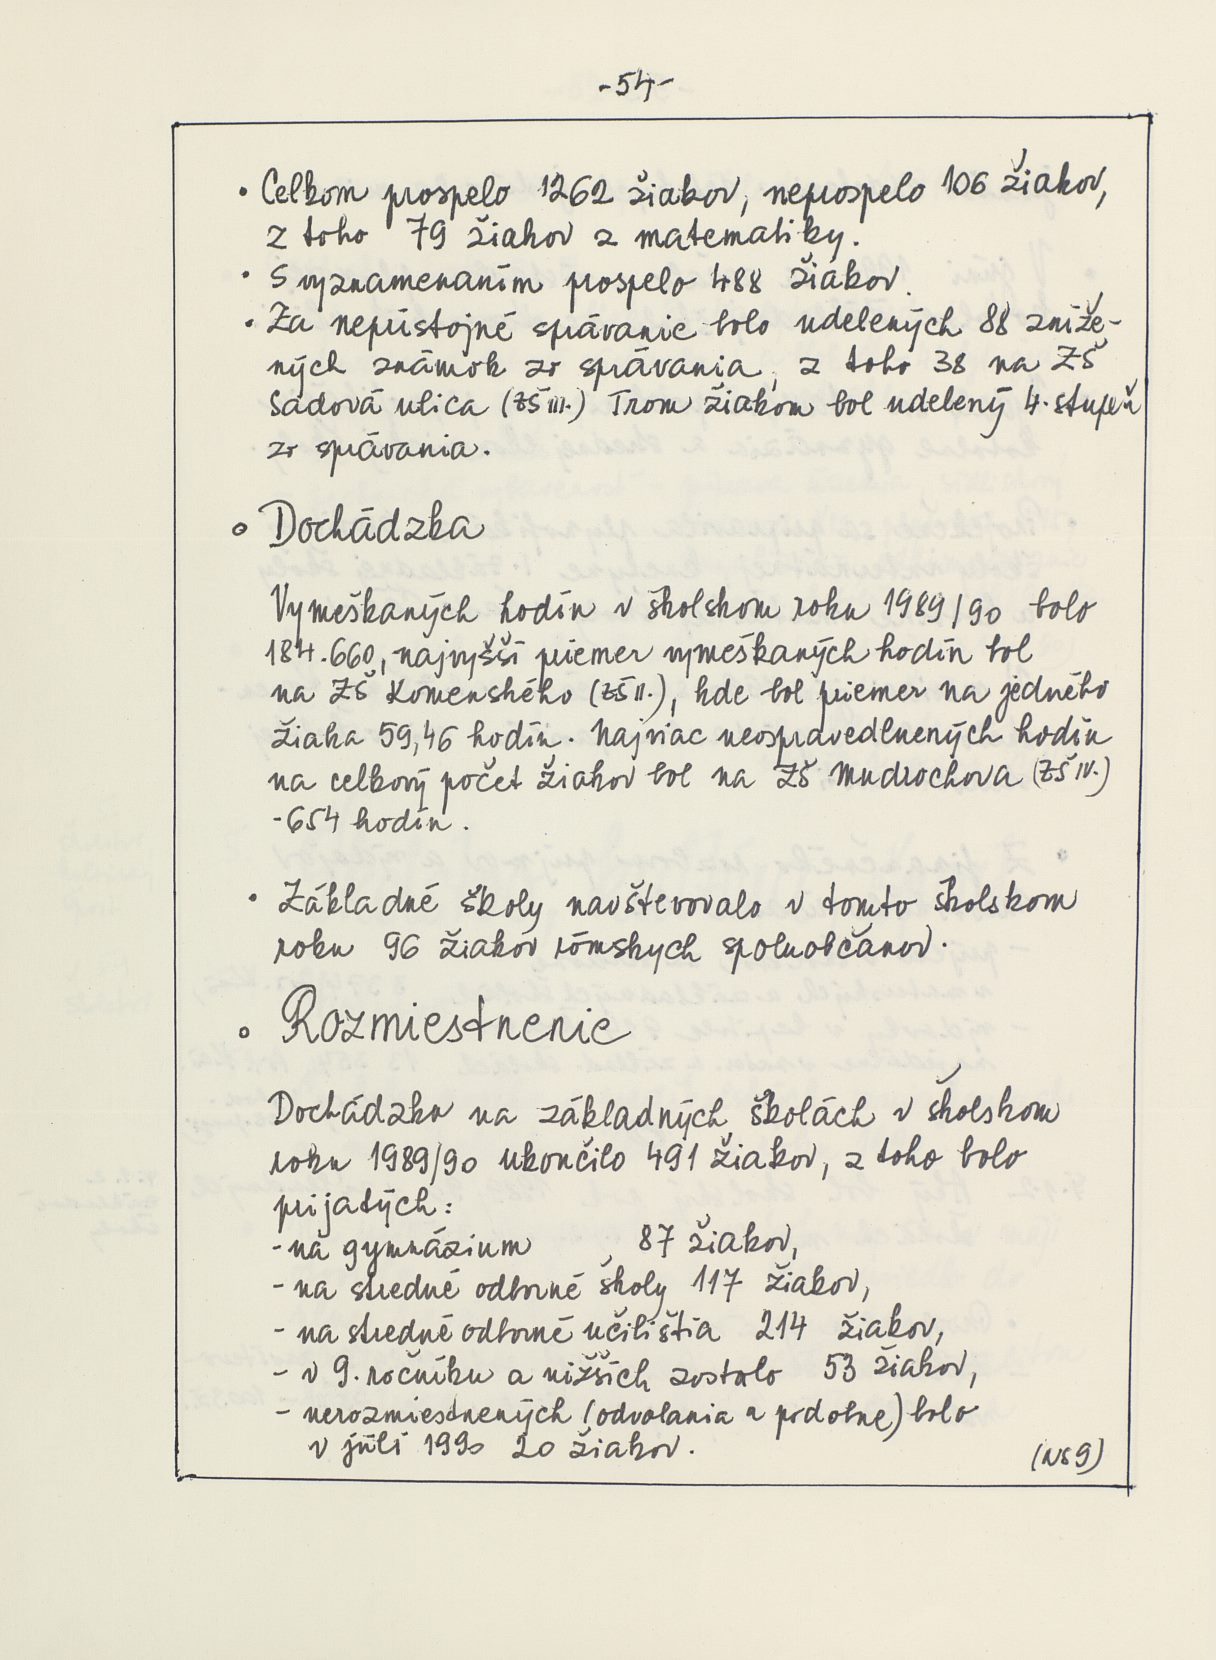 -54-
• Celkom prospelo 1262 žiakov, neprospelo 106 žiakov,
z toho 79 žiakov z matematiky.
• S vyznamenaním prospelo 488 žiakov.
• Za neprístojné správanie bolo udelených 88 zníže-
ných známok zo správania, z toho 38 na ZŠ
Sadová ulica (ZŠ III.) Trom žiakom bol udelený 4. stupeň
zo správania.
o Dochádzka
Vymeškaných hodín v školskom roku 1989/90 bolo
184.660, najvyšší priemer vymeškaných hodín bol
na ZŠ Komenského (ZŠ II.), kde bol priemer na jedného
žiaka 59,46 hodín. Najviac neospravedlnených hodín
na celkový počet žiakov bol na ZŠ Mudrochova (ZŠ IV.)
-654 hodín.
• Základné školy navštevovalo v tomto školskom
roku 96 žiakov rómskych spoluobčanov.
o Rozmiestnenie
Dochádzku na základných školách v školskom
roku 1989/90 ukončilo 491 žiakov, z toho bolo
prijatých:
- na gymnázium 87 žiakov,
- na stredné odborné školy 117 žiakov,
- na stredné odborné učilištia 214 žiakov,
- v 9. ročníku a nižších zostalo 53 žiakov,
- nerozmiestnených (odvolania a podobne) bolo
v júli 1990 20 žiakov.
(NS 9)